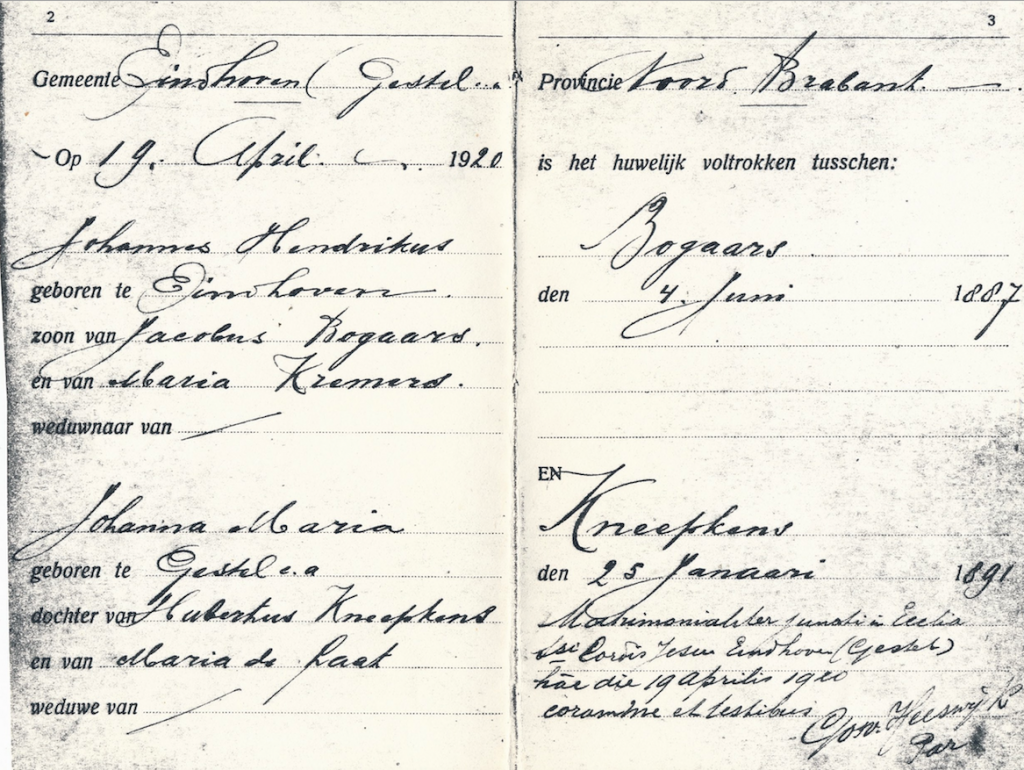 2
Gemeente Eindhoven (Gestel
Op 19. April. 1920
Johannes Hendrikus
geboren te Eindhoven
zoon van Jacobus Bogaars.
en van Maria Kremers.
weduwnaar van
Johanna Maria
geboren te Gestel e.a
dochter van Hubertus Kneepkens
en van Maria de Laat
weduwe van
3
Provincie Noord Brabant.
is het huwelijk voltrokken tusschen:
Bogaars
den 4. Juni 1887
EN
Kneepkens
den 25 Januari 1891
Matrimonialiter juncti in Ecclia
SSi Cordis Jesu Eindhoven (Gestel)
hac die 19 Aprilis 1920
coram me et testibus
Heeswijk